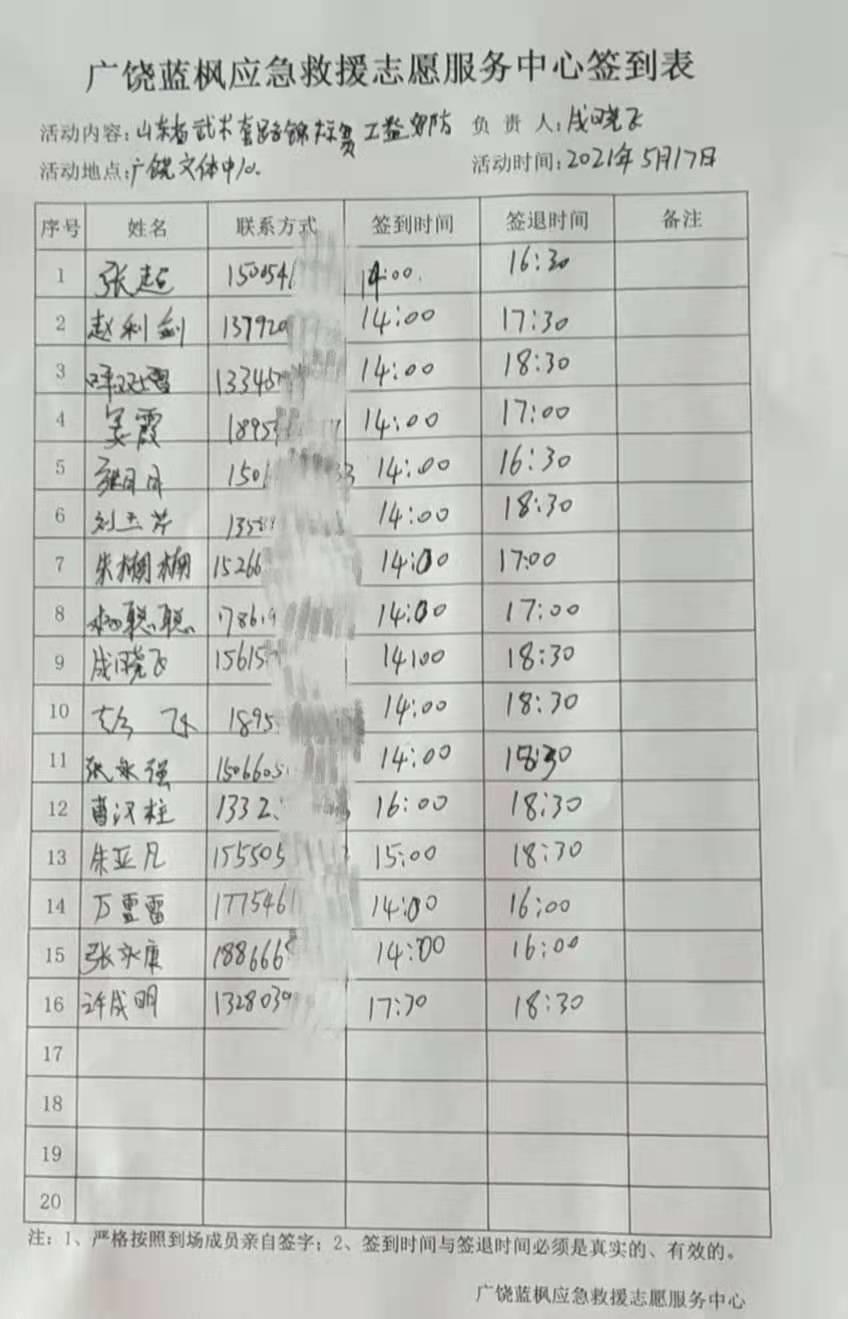 广饶蓝枫应急救援志愿服务中心签到表
活动内容:山东省武术套路锦标赛 负责人:成晓飞
活动地点:广饶文体中心. 活动时间:2021年5月17日
序号 姓名 联系方式 签到时间 签退时间 备注
1 张超 150054 14:00. 16:30
2 赵利剑 137920 14:00 17:30
3 133457 14:00 18:30
4 姜霞 1895 14:00 17:00
5 150 33 14:00 16:30
6 刘玉芹 1358 14:00 18:30
7 朱楜楜 15266 14:00 17:00
8 杨聪聪 178619 14:00 17:00
9 成晓飞 15615 14:00 18:30
10 1895 14:00 18:30
11 张永强 1506605 14:00 18:30
12 曹汉柱 1332 16:00 18:30
13 朱亚凡 155505 15:00 18:30
14 万雷 1775461 14:00 16:00
15 张永康 188666 14:00 16:00
16 许成明 1328030 17:30 18:30
17
18
19
20
注:1、严格按照到场成员亲自签字;2、签到时间与签退时间必须是真实的、有效的。
广饶蓝枫应急救援志愿服务中心